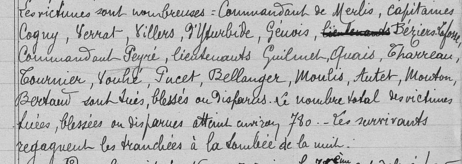 Les victimes sont nombreuses = Commandant de Merlis, capitaines
Cogny, Verrat, Villers, d'Yturbide, Genois, lieutenants Béziers-Lafosse,
Commandant Peyré, lieutenants Guilmet, Quais, Charreau,
Tournier, Vouhé, Pucet, Bellanger, Moulis, Autet, Mouton,
Bertaud sont tués, blessés ou disparus. Le nombre total des victimes
tuées, blessées ou disparues atteint environ 780 -. Les survivants
regagnent les tranchées à la tombée de la nuit.